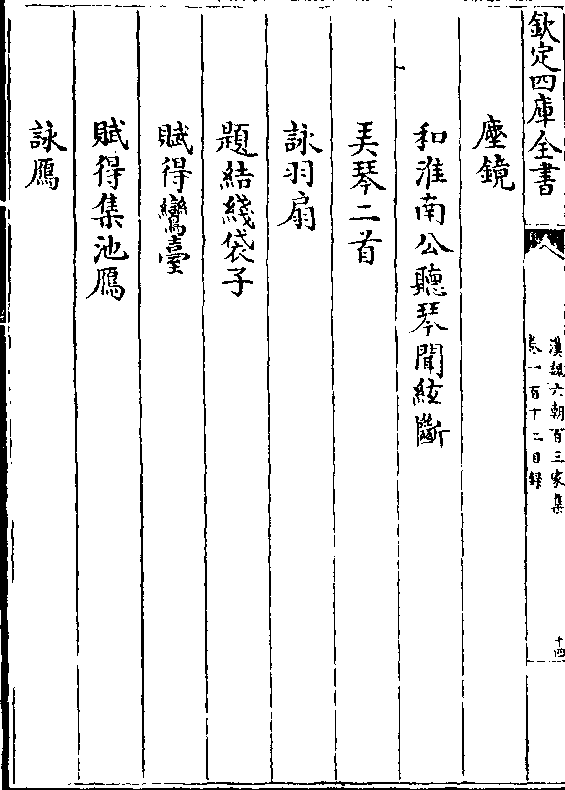 欽定四庫全書
漢魏六朝百三家集
卷一百十二目錄
十四
塵鏡
和淮南公聽琴聞絃斷
美琴二首
詠羽扇
題結綫袋子
賦得鸞臺
賦得集池鴈
詠鴈